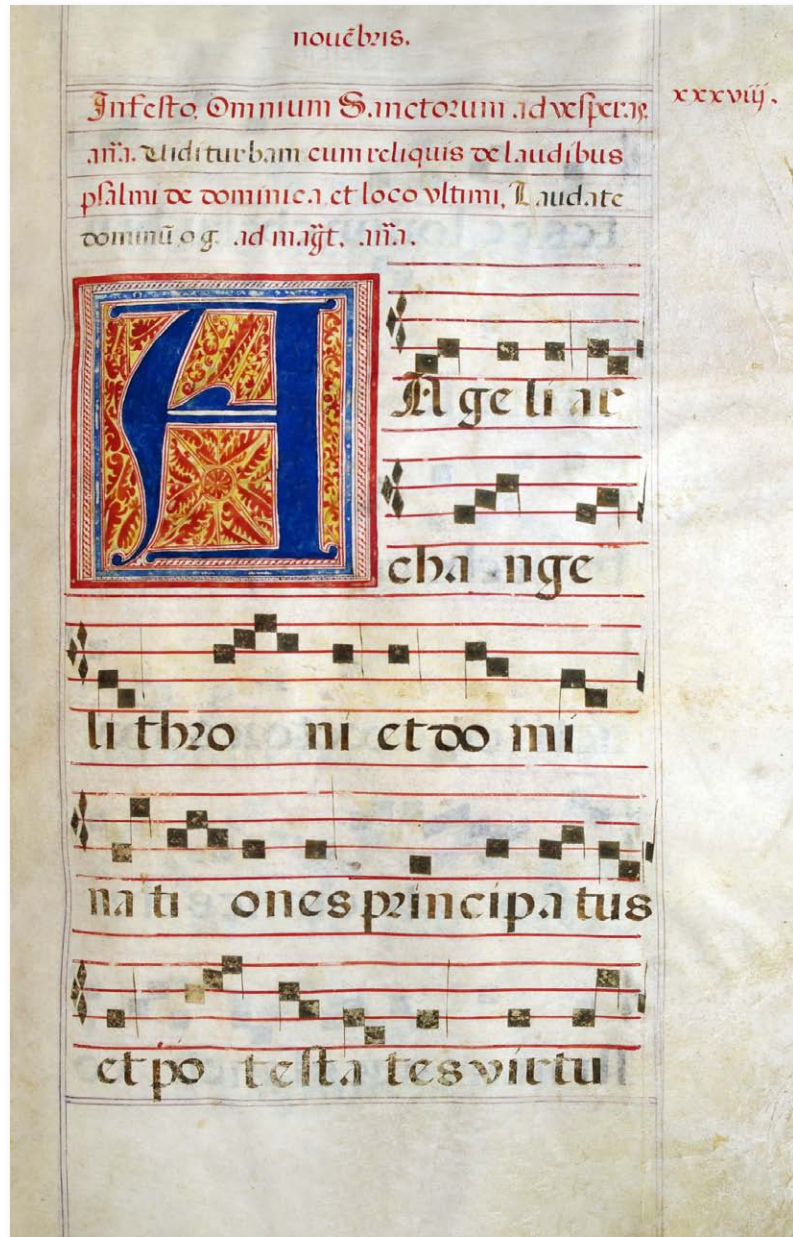 nouẽbris.
In festo. Omnium Sanctorum ad vesperas. xxxviij.
añ̃a. Uidi turbam cum reliquis de laudibus
psalmi de dominica et loco vltimi, Laudate
dominũ o g. ad mag̃t. añ̃a.
A Ngeli ar
cha nge
li thro ni et do mi
na ti ones principatus
et po testa tes virtu